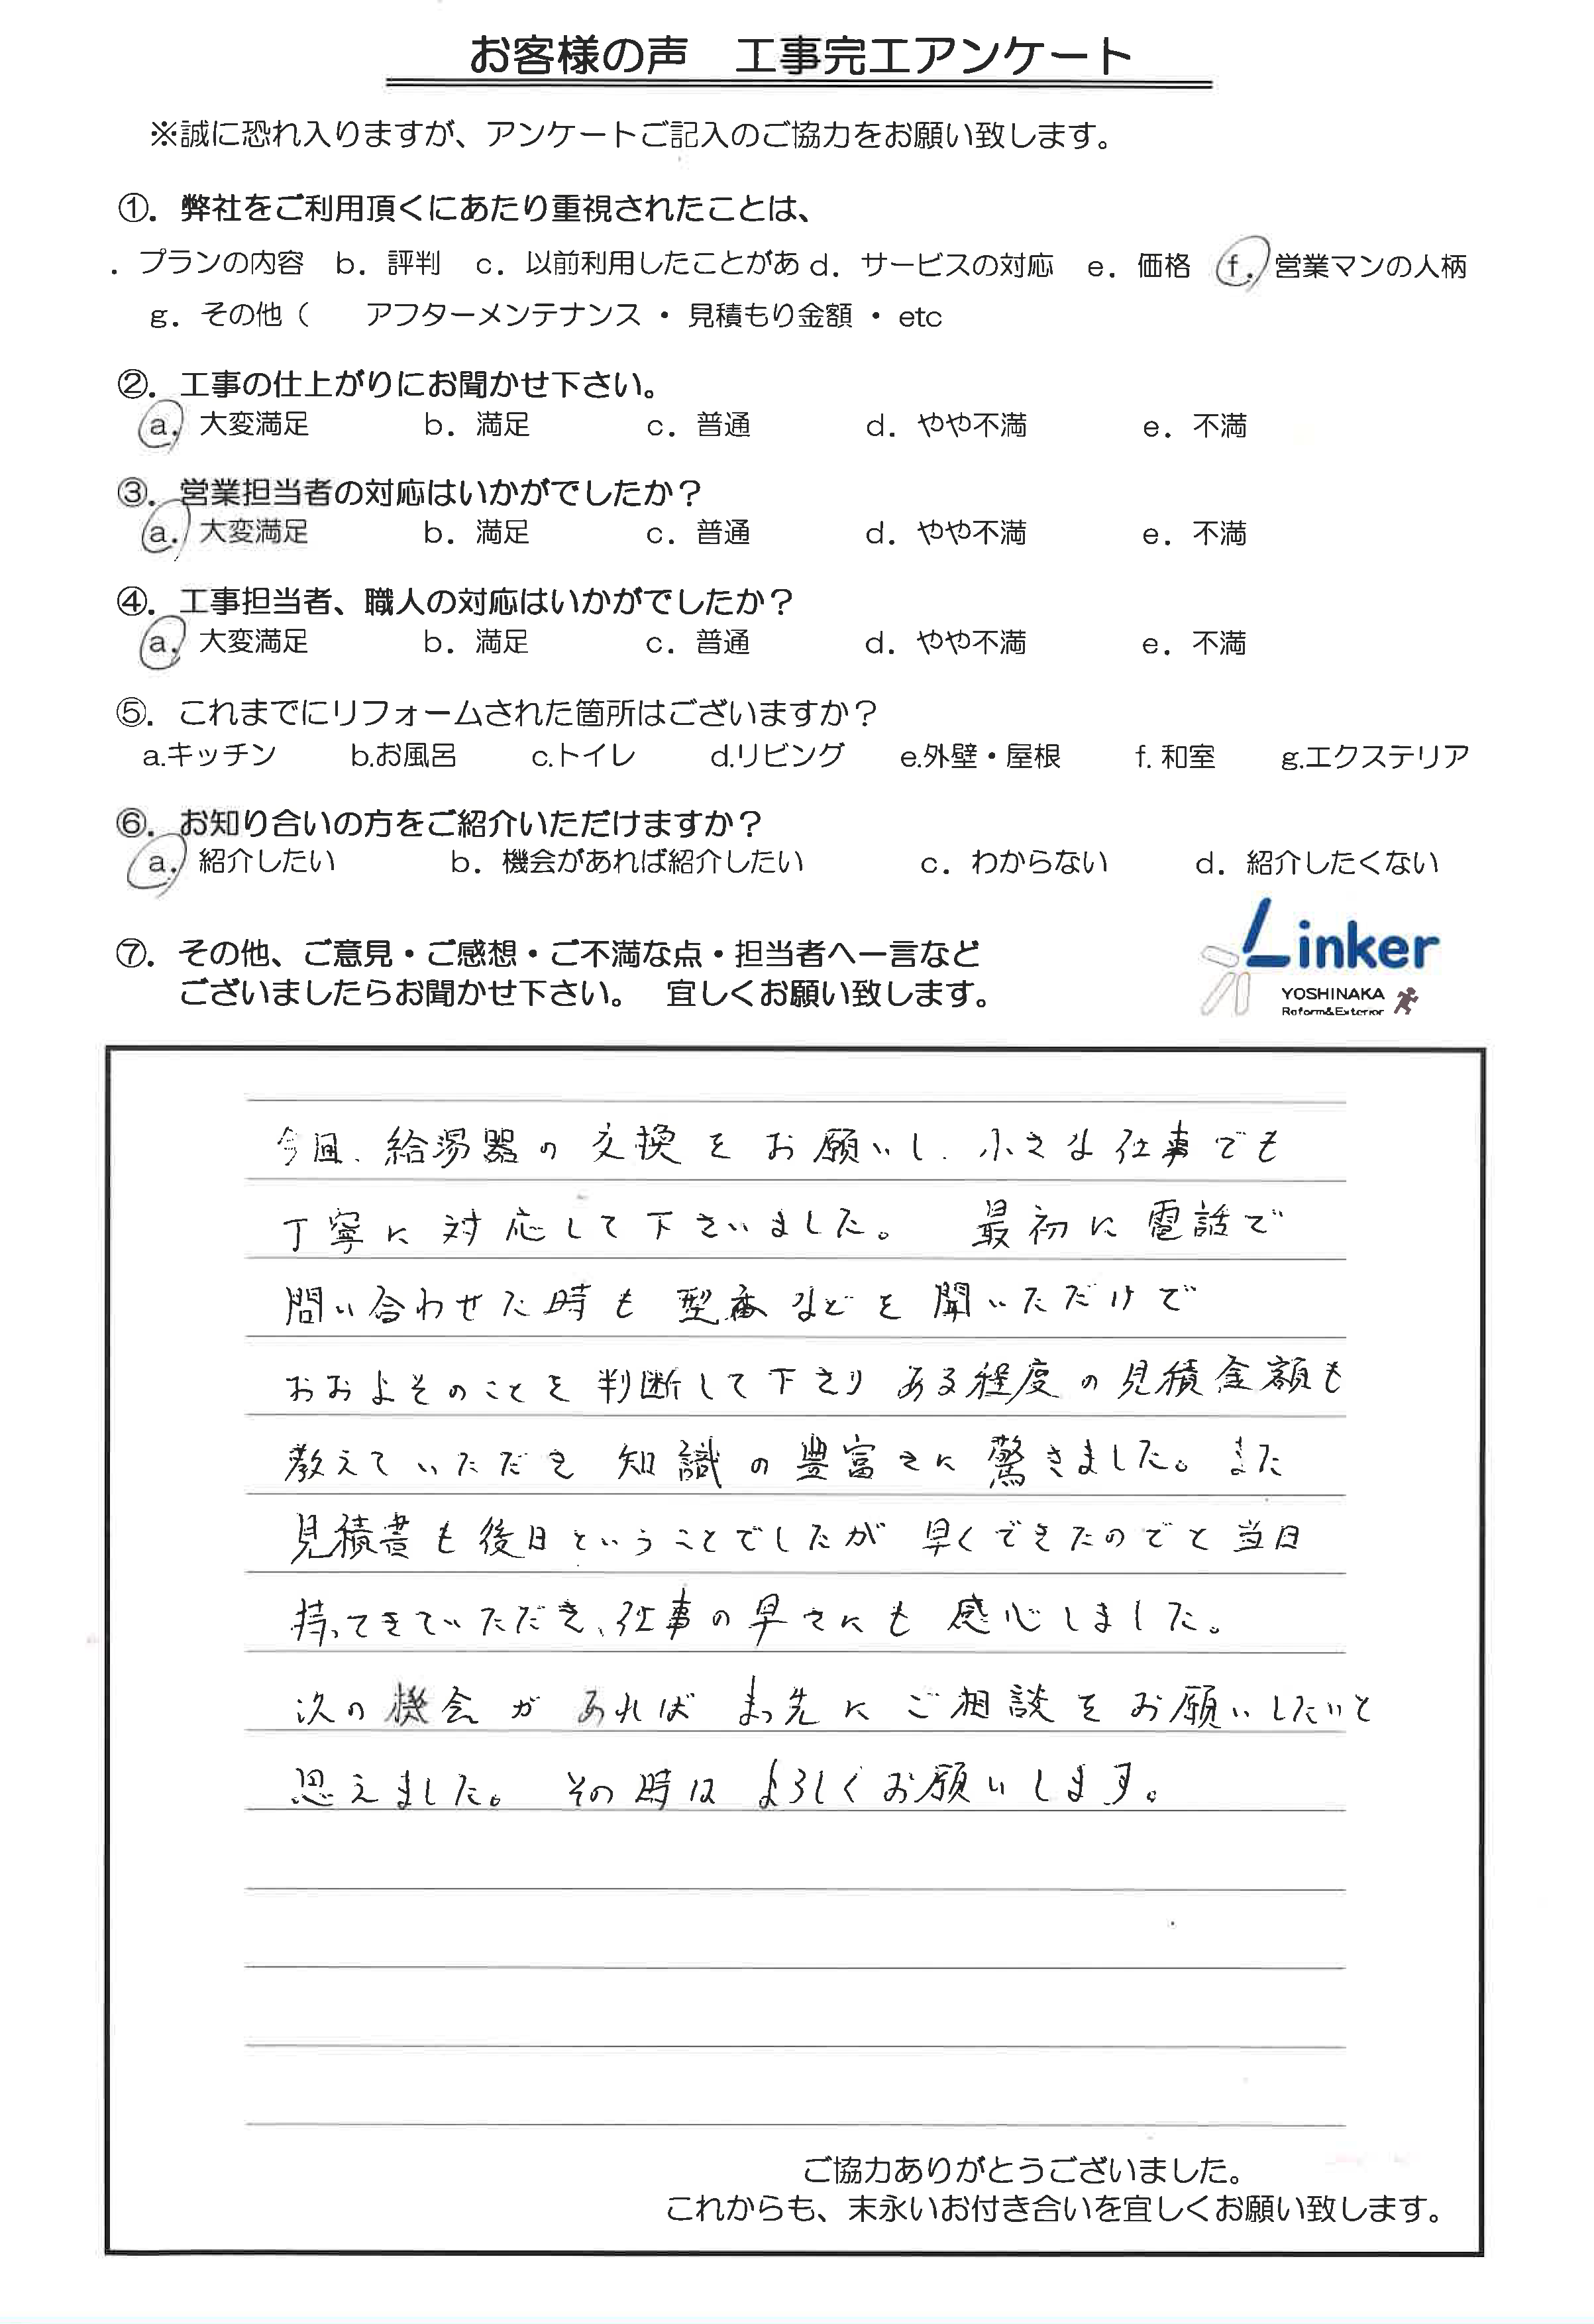 お客様の声　工事完工アンケート
※誠に恐れ入りますが、アンケートご記入のご協力をお願い致します。
①．弊社をご利用頂くにあたり重視されたことは、
．プランの内容　b．評判　c．以前利用したことがあ d．サービスの対応　e．価格　f．営業マンの人柄
g．その他（　　アフターメンテナンス ・ 見積もり金額 ・ etc
②．工事の仕上がりにお聞かせ下さい。
a．大変満足　b．満足　c．普通　d．やや不満　e．不満
③．営業担当者の対応はいかがでしたか？
a．大変満足　b．満足　c．普通　d．やや不満　e．不満
④．工事担当者、職人の対応はいかがでしたか？
a．大変満足　b．満足　c．普通　d．やや不満　e．不満
⑤．これまでにリフォームされた箇所はございますか？
a.キッチン　b.お風呂　c.トイレ　d.リビング　e.外壁・屋根　f. 和室　g.エクステリア
⑥．お知り合いの方をご紹介いただけますか？
a．紹介したい　b．機会があれば紹介したい　c．わからない　d．紹介したくない
⑦．その他、ご意見・ご感想・ご不満な点・担当者へ一言など
ございましたらお聞かせ下さい。　宜しくお願い致します。
Linker
YOSHINAKA
Reform&Exterior
今回、給湯器の交換をお願いし、小さな仕事でも
丁寧に対応して下さいました。　最初に電話で
問い合わせた時も型番などを聞いただけで
おおよそのことを判断して下さり ある程度の見積金額も
教えていただき 知識の豊富さに驚きました。また
見積書も後日ということでしたが 早くできたのでと当日
持ってきていただき、仕事の早さにも感心しました。
次の機会があれば まっ先にご相談をお願いしたいと
思えました。　その時はよろしくお願いします。
ご協力ありがとうございました。
これからも、末永いお付き合いを宜しくお願い致します。